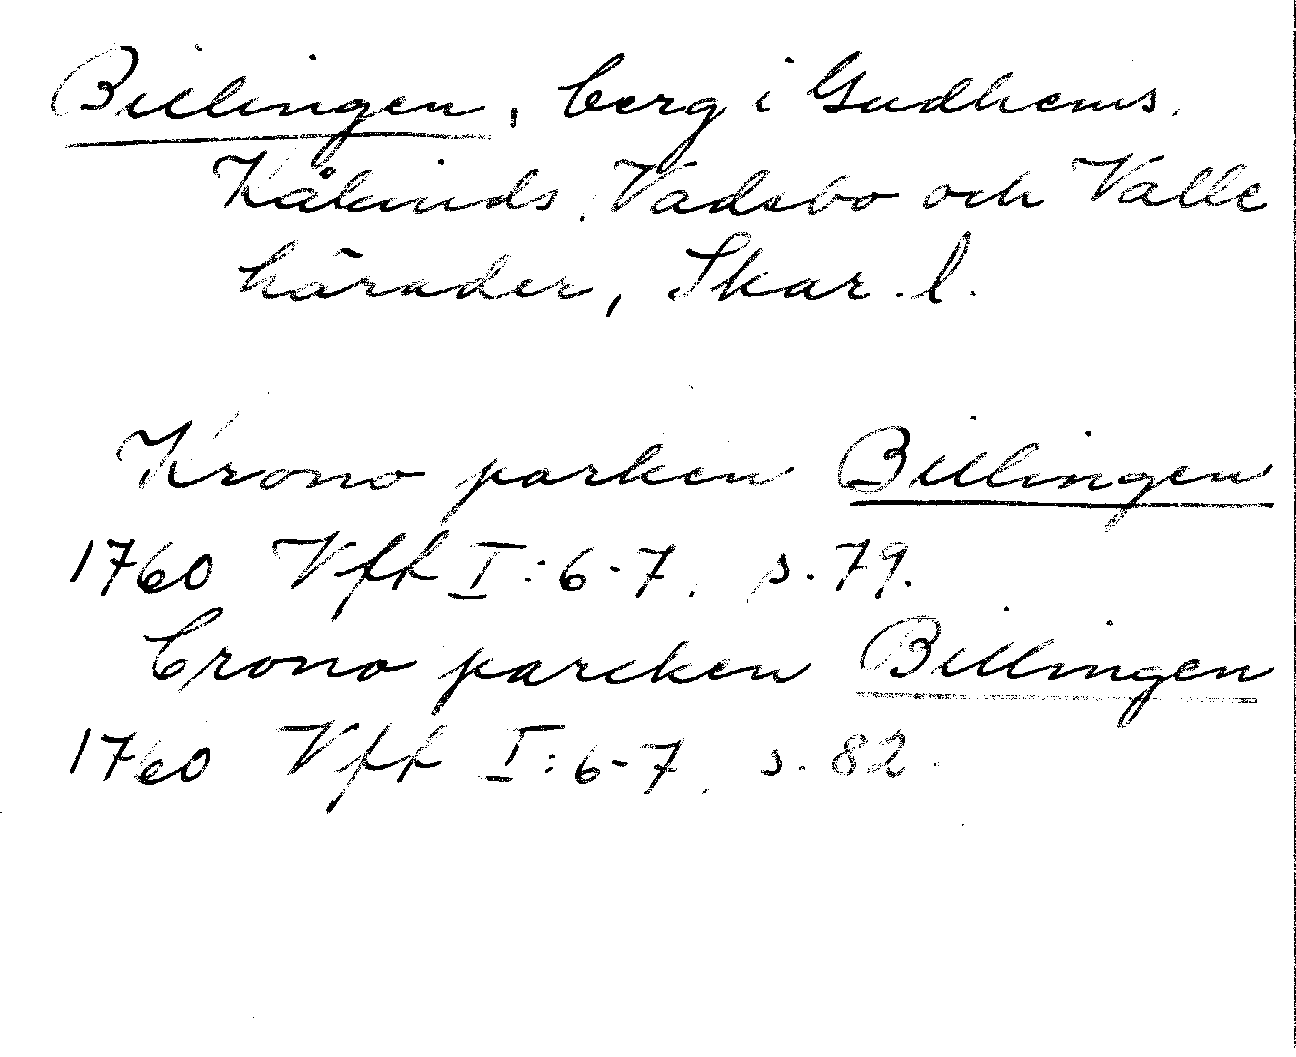 Billingen, berg i Gudhems,
Kåkinds, Vadsbo och Valle
härader, Skar. l.
Krono parken Billingen
1760 Vft I:6-7, s. 79.
Crono parcken Billingen
1760 Vft I:6-7, s. 82.